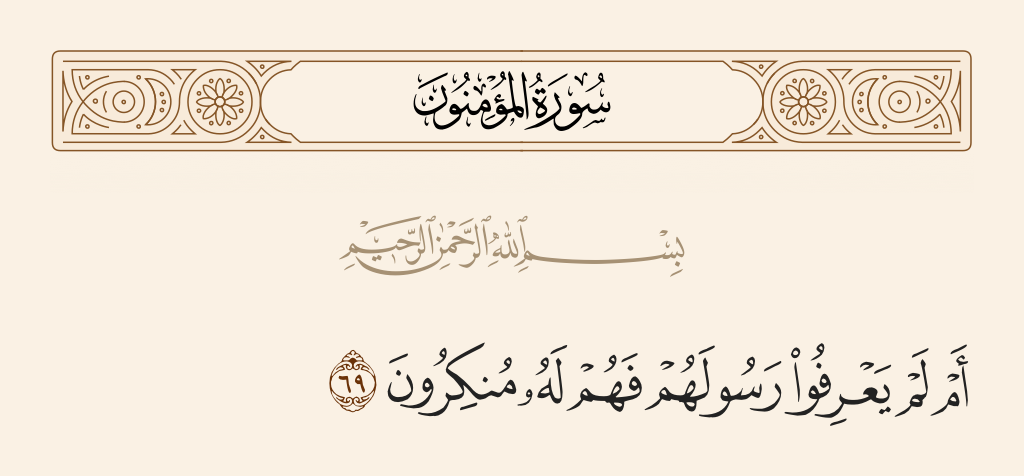 سُورَةُ المُؤْمِنُونَ
بِسْمِ ٱللَّهِ ٱلرَّحْمَٰنِ ٱلرَّحِيمِ
أَمْ لَمْ يَعْرِفُوا۟ رَسُولَهُمْ فَهُمْ لَهُۥ مُنكِرُونَ ٦٩